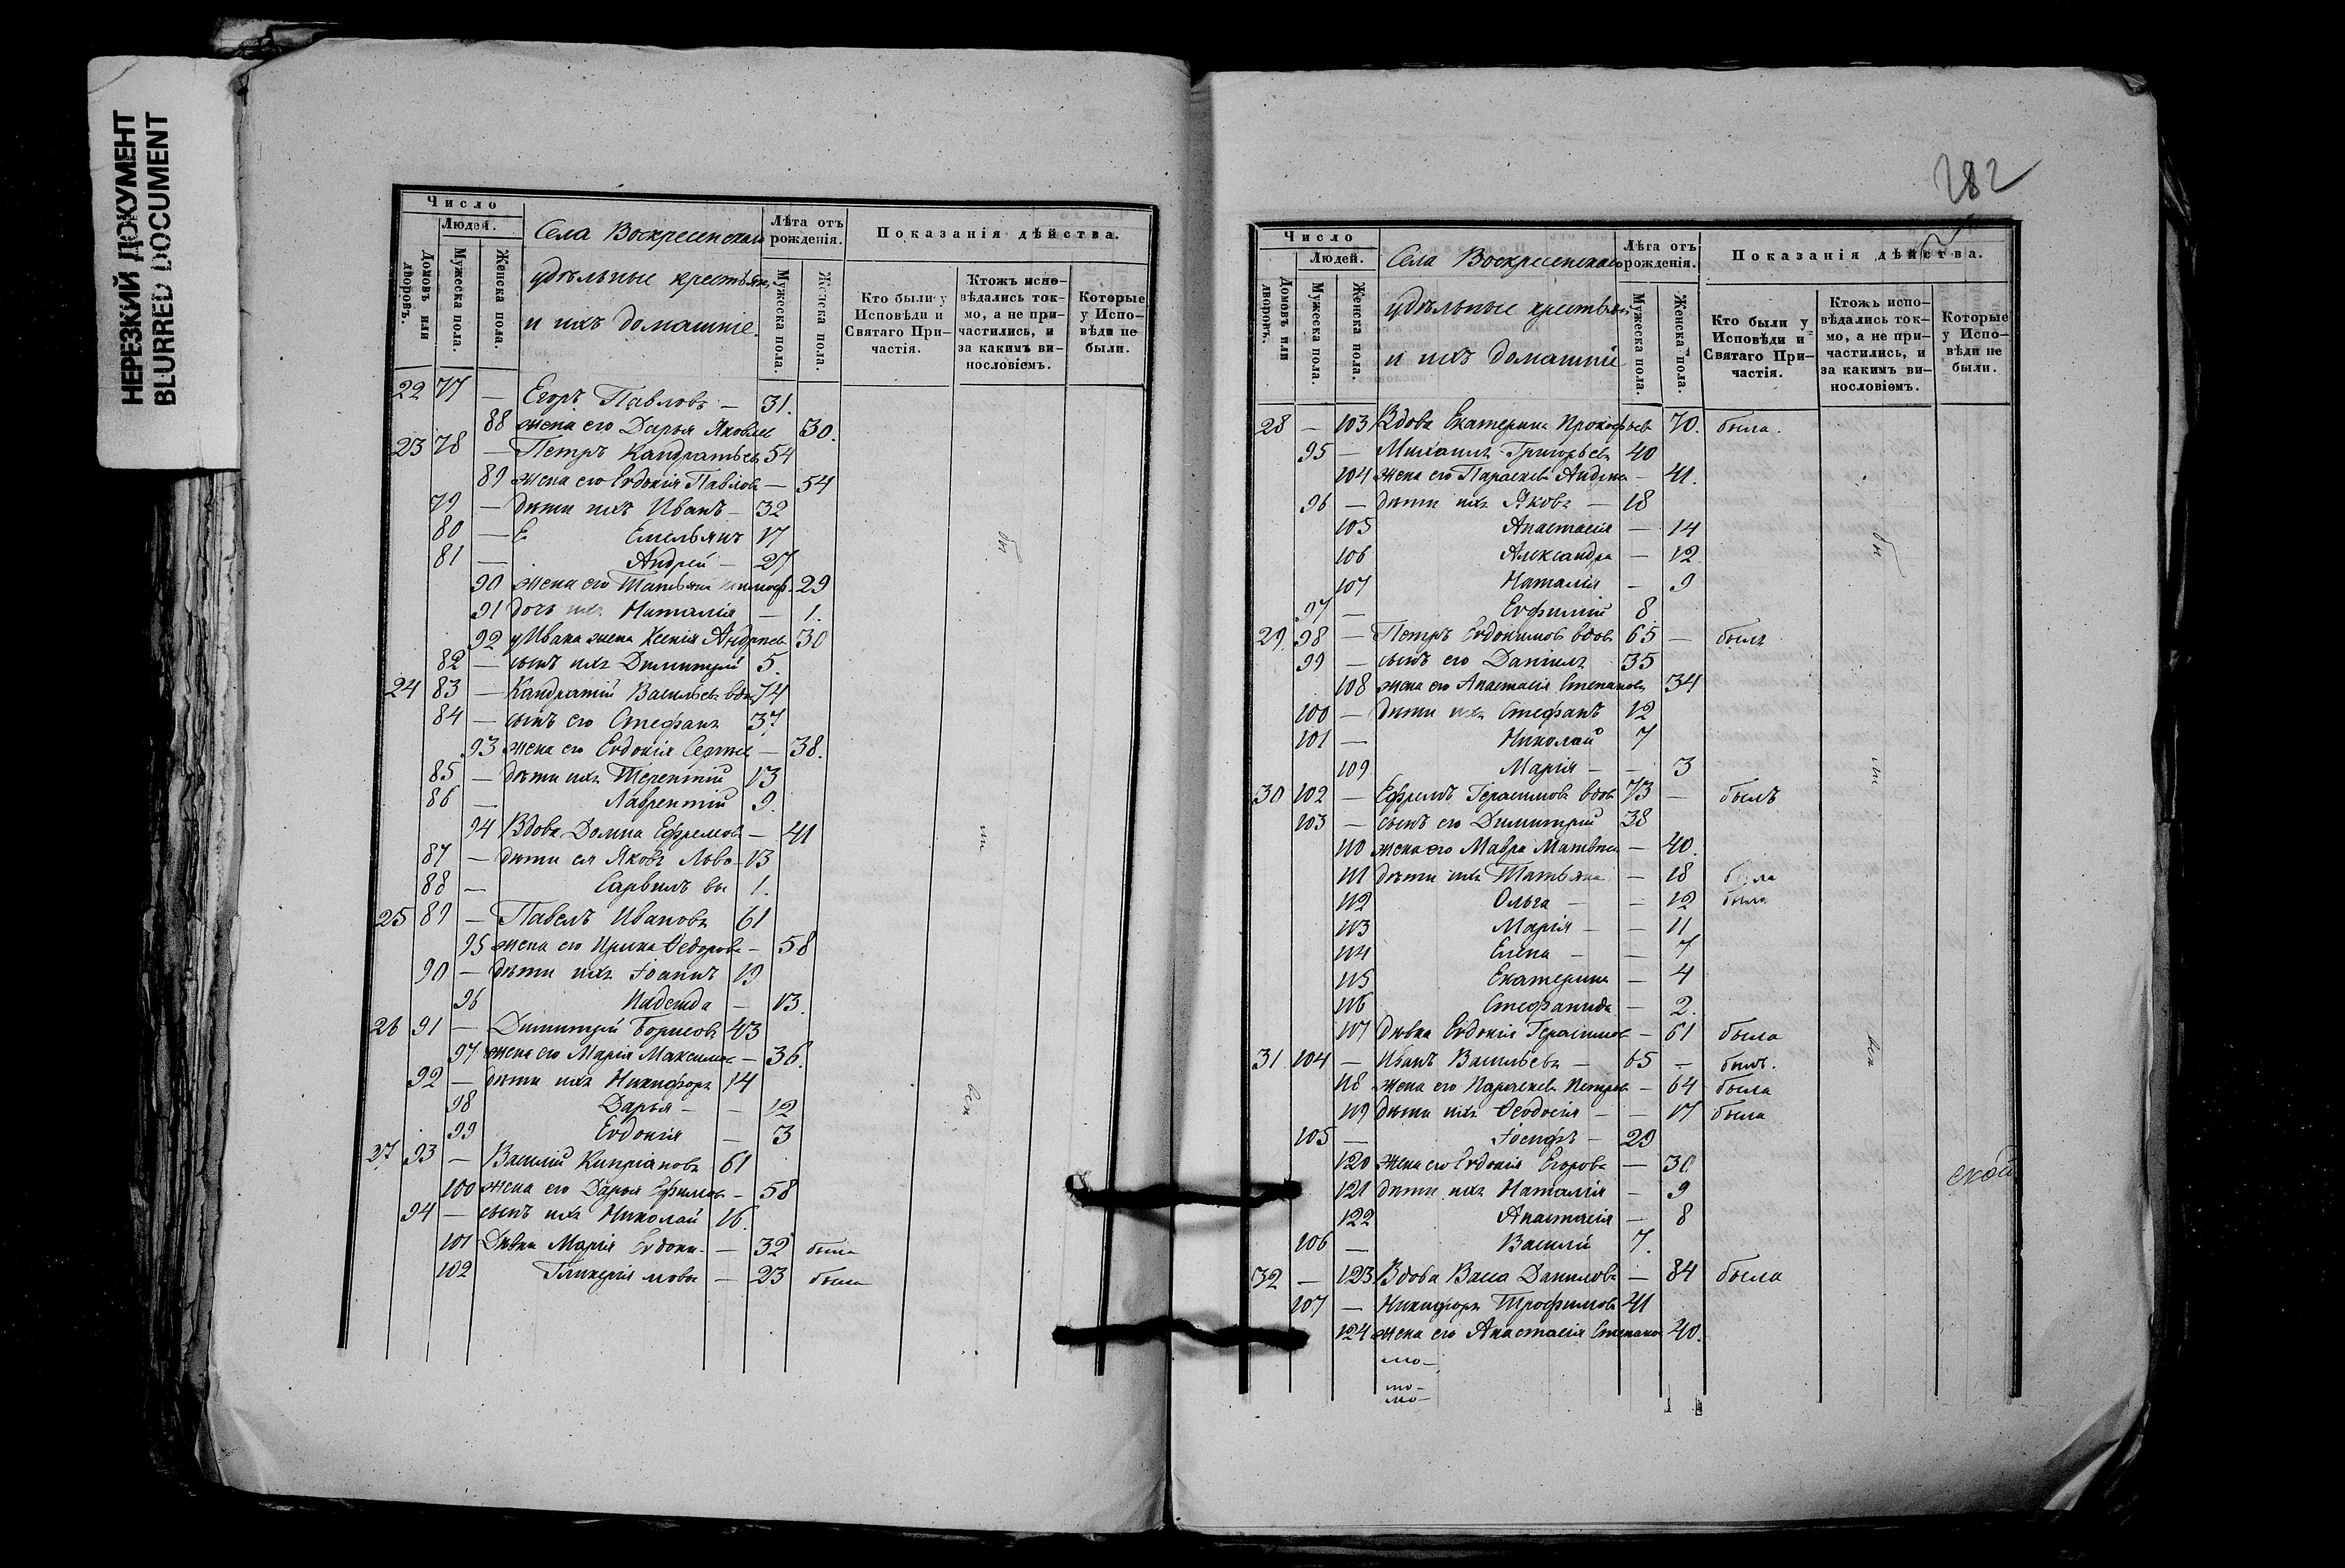 НЕРЕЗКИЙ ДОКУМЕНТ
BLURRED DOCUMENT
Число
Людей.
Домовъ или дворовъ.
Мужеска пола.
Женска пола.
Села Воскресенскаго
удѣльные крестьяне
и ихъ домашніе.
Лѣта отъ рожденія.
Мужеска пола.
Женска пола.
Показанія дѣйства.
Кто были у Исповѣди и Святаго При-частія.
Ктожъ испо-вѣдались ток-мо, а не при-частились, и за какимъ ви-нословіемъ.
Которые у Испо-вѣди не были.
22 77 — Егоръ Павловъ — 31.
88 жена его Дарья Яковлев 30.
23 78 — Петръ Кандратьевъ 54
89 жена его Евдокія Павлова — 54
79 — дѣти ихъ Иванъ — 32
80 — Е Емельянъ 17
81 — Андрей — 27
90 жена его Татьяна 29
91 дочь ихъ Наталія — 1.
92 у Ивана жена Ксенія Андреев 30
82 — сынъ ихъ Димитрій 5.
24 83 — Кандратій Васильевъ вдов 74
84 — сынъ его Стефанъ 37.
93 жена его Евдокія Сергѣе — 38.
85 — дѣти ихъ Терентій 13
86 — Лаврентій 9.
94 Вдова Домна Ефремова — 41
87 — дѣти ея Яковъ 13
88 — 1.
25 89 — Павелъ Ивановъ 61
95 жена его Ирина Ѳедорова — 58
90 — дѣти ихъ Іоаннъ 19
96 Надежда — 13.
26 91 — Димитрій Борисовъ 43
97 жена его Марія Максимов — 36.
92 — дѣти ихъ Никифоръ 14
98 Дарья — — 12
99 Евдокія — 3
27 93 — Василій Кипріановъ 61
100 жена его Дарья Ефимова — 58
94 — сынъ ихъ Николай 16.
101 Дѣвки Марія Евдоки- — 32 была
102 Гликерія мовы — 23 была
282
Число
Людей.
Домовъ или дворовъ.
Мужеска пола.
Женска пола.
Села Воскресенскаго
удѣльные крестьян
и ихъ домашніе
Лѣта отъ рожденія.
Мужеска пола.
Женска пола.
Показанія дѣйства.
Кто были у Исповѣди и Святаго При-частія.
Ктожъ испо-вѣдались ток-мо, а не при-частились, и за какимъ ви-нословіемъ.
Которые у Испо-вѣди не были.
28 — 103 Вдова Екатерина Прокофьев 70. была.
95 — Михаилъ Григорьевъ 40
104 жена его Параскева Андре — 41.
96 — дѣти ихъ Яковъ — 18
105 Анастасія — 14
106 Александра — 12
107 Наталія — 9
97 — Евфимій 8
29 98 — Петръ Евдокимовъ вдов 65 — былъ
99 — сынъ его Даніилъ 35
108 жена его Анастасія Степанова 34
100 — дѣти ихъ Стефанъ 12
101 — Николай 7
109 Марія — — 3
30 102 — Ефремъ Герасимовъ вдов 73 — былъ
103 — сынъ его Димитрій 38
110 жена его Мавра Матвѣев — 40.
111 дѣти ихъ Татьяна — 18 была
112 Ольга — — 12 была
113 Марія — — 11
114 Елена — — 7
115 Екатерина — 4
116 Стефанида — 2.
117 дѣвка Евдокія Герасимов — 61 была
31 104 — Иванъ Васильевъ — 65 — былъ.
118 жена его Параскева Петров — 64 была
119 дѣти ихъ Ѳеодосія — — 17 была
105 — Іосифъ — 29
120 жена его Евдокія Егорова — 30
121 дѣти ихъ Наталія — 9
122 Анастасія — 8
106 — Василій 7.
32 — 123 Вдова Васса Данилова — 84 была
107 — Никифоръ Трофимовъ 41
124 жена его Анастасія Степано 40.
бы
ли
вси
бы
ли
вси
ской